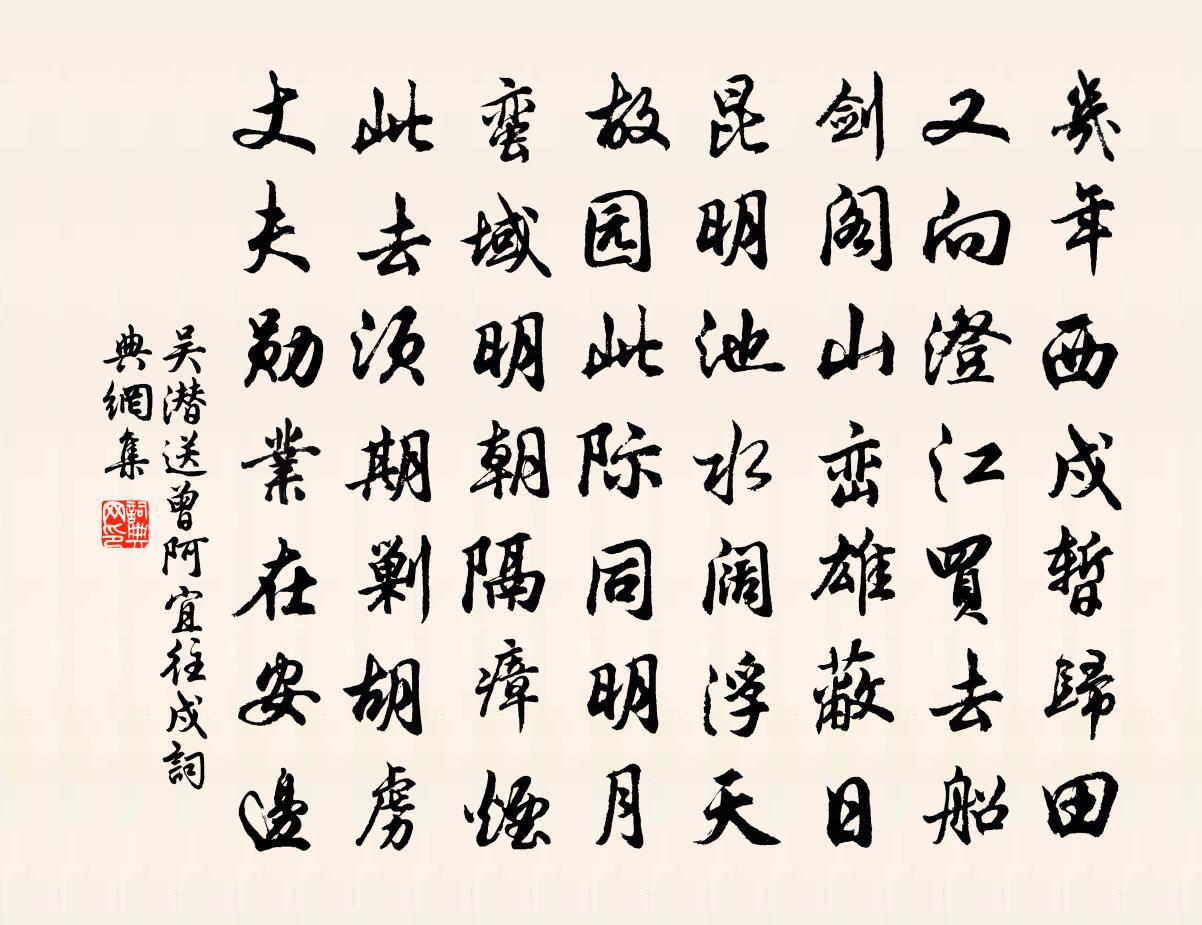 幾年西戍暫歸田
又向澄江買去船
剑阁山峦雄蔽日
昆明池水阔浮天
故园此际同明月
蛮域明朝隔瘴煙
此去须期剿胡虏
丈夫勋業在安邊
吴潜送曾阿宜往戍詞
典網集
詞典
网印